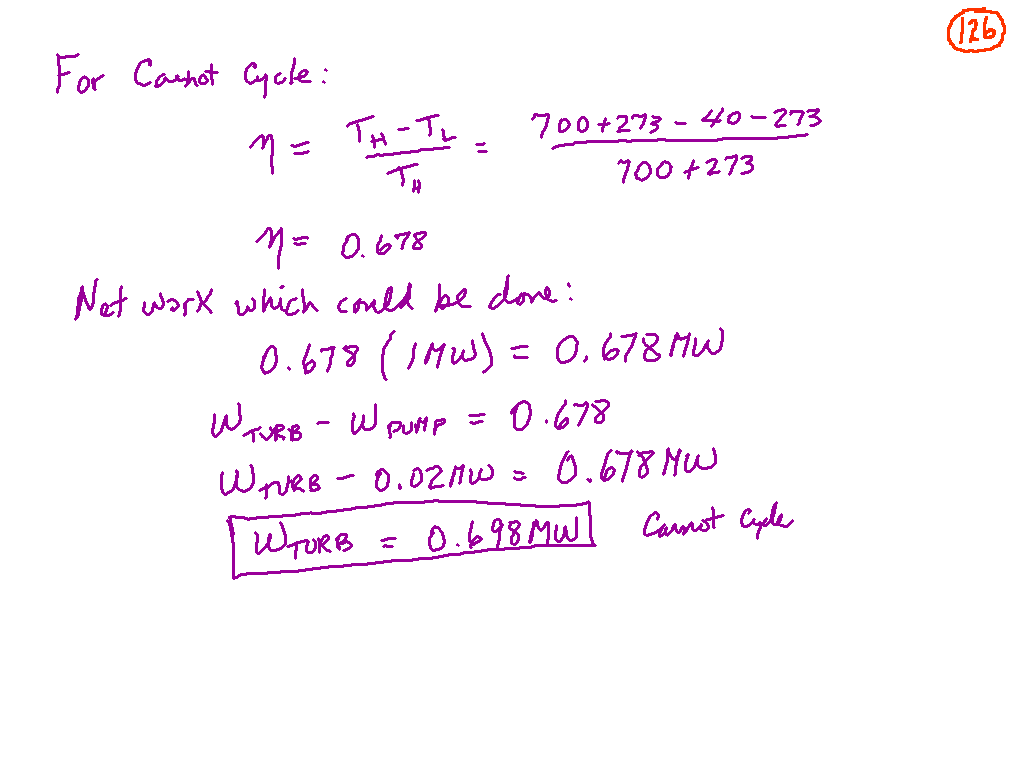 126
For Carnot Cycle:
η = (T_H - T_L) / T_H = (700 + 273 - 40 - 273) / (700 + 273)
η = 0.678
Net work which could be done:
0.678 (1MW) = 0.678 MW
W_TURB - W_PUMP = 0.678
W_TURB - 0.02MW = 0.678 MW
W_TURB = 0.698 MW Carnot Cycle